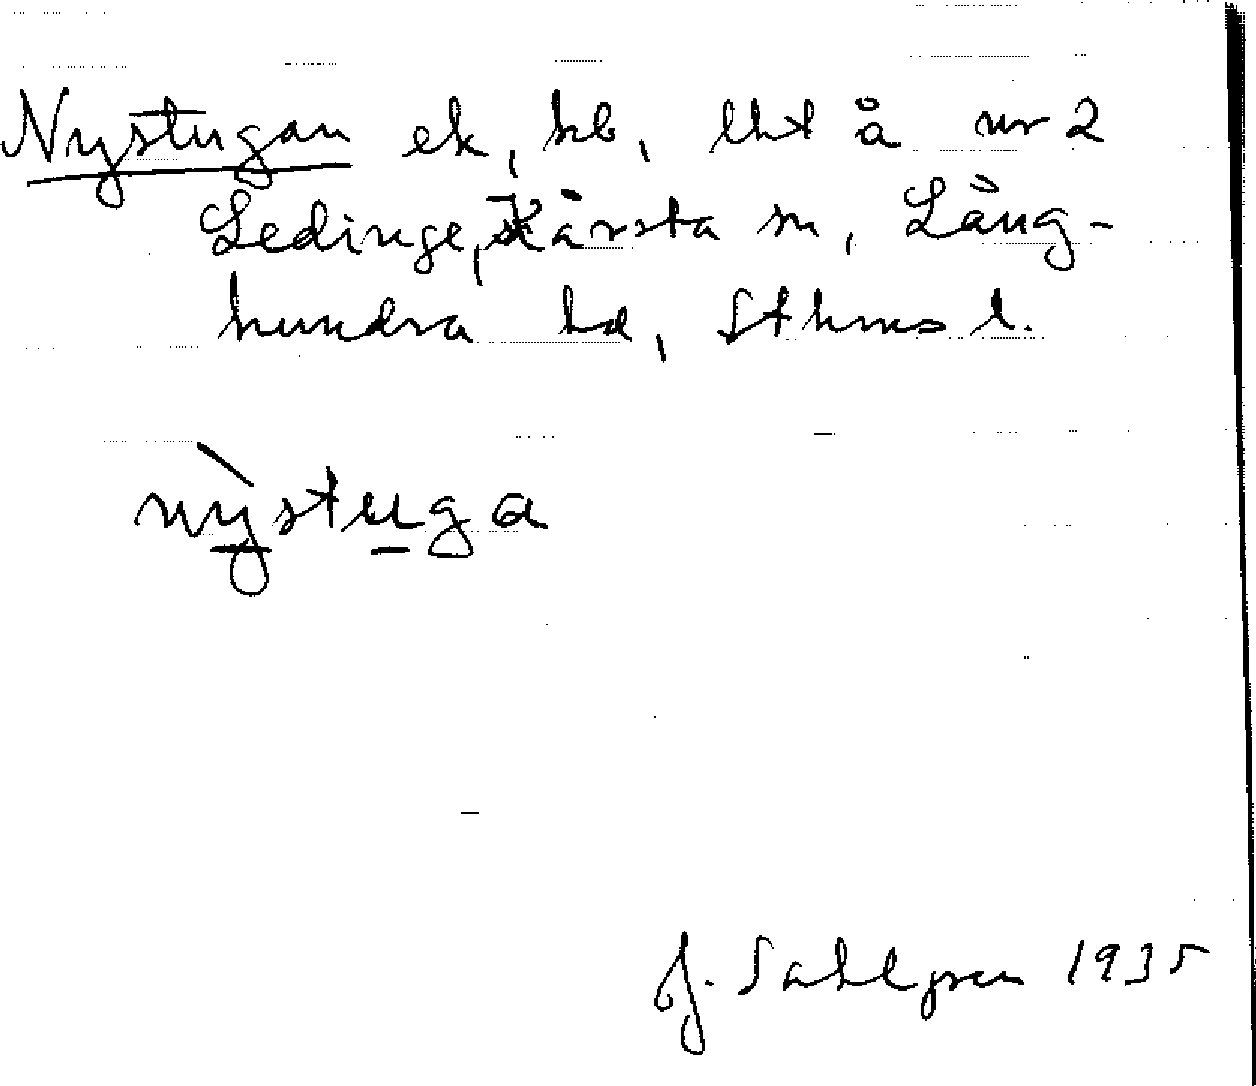 Nystugan ek, kb, lht å nr 2
Ledinge, Kårsta sn, Lång-
hundra hd, Sthms l.
nỳstuga
J. Sahlgren 1935